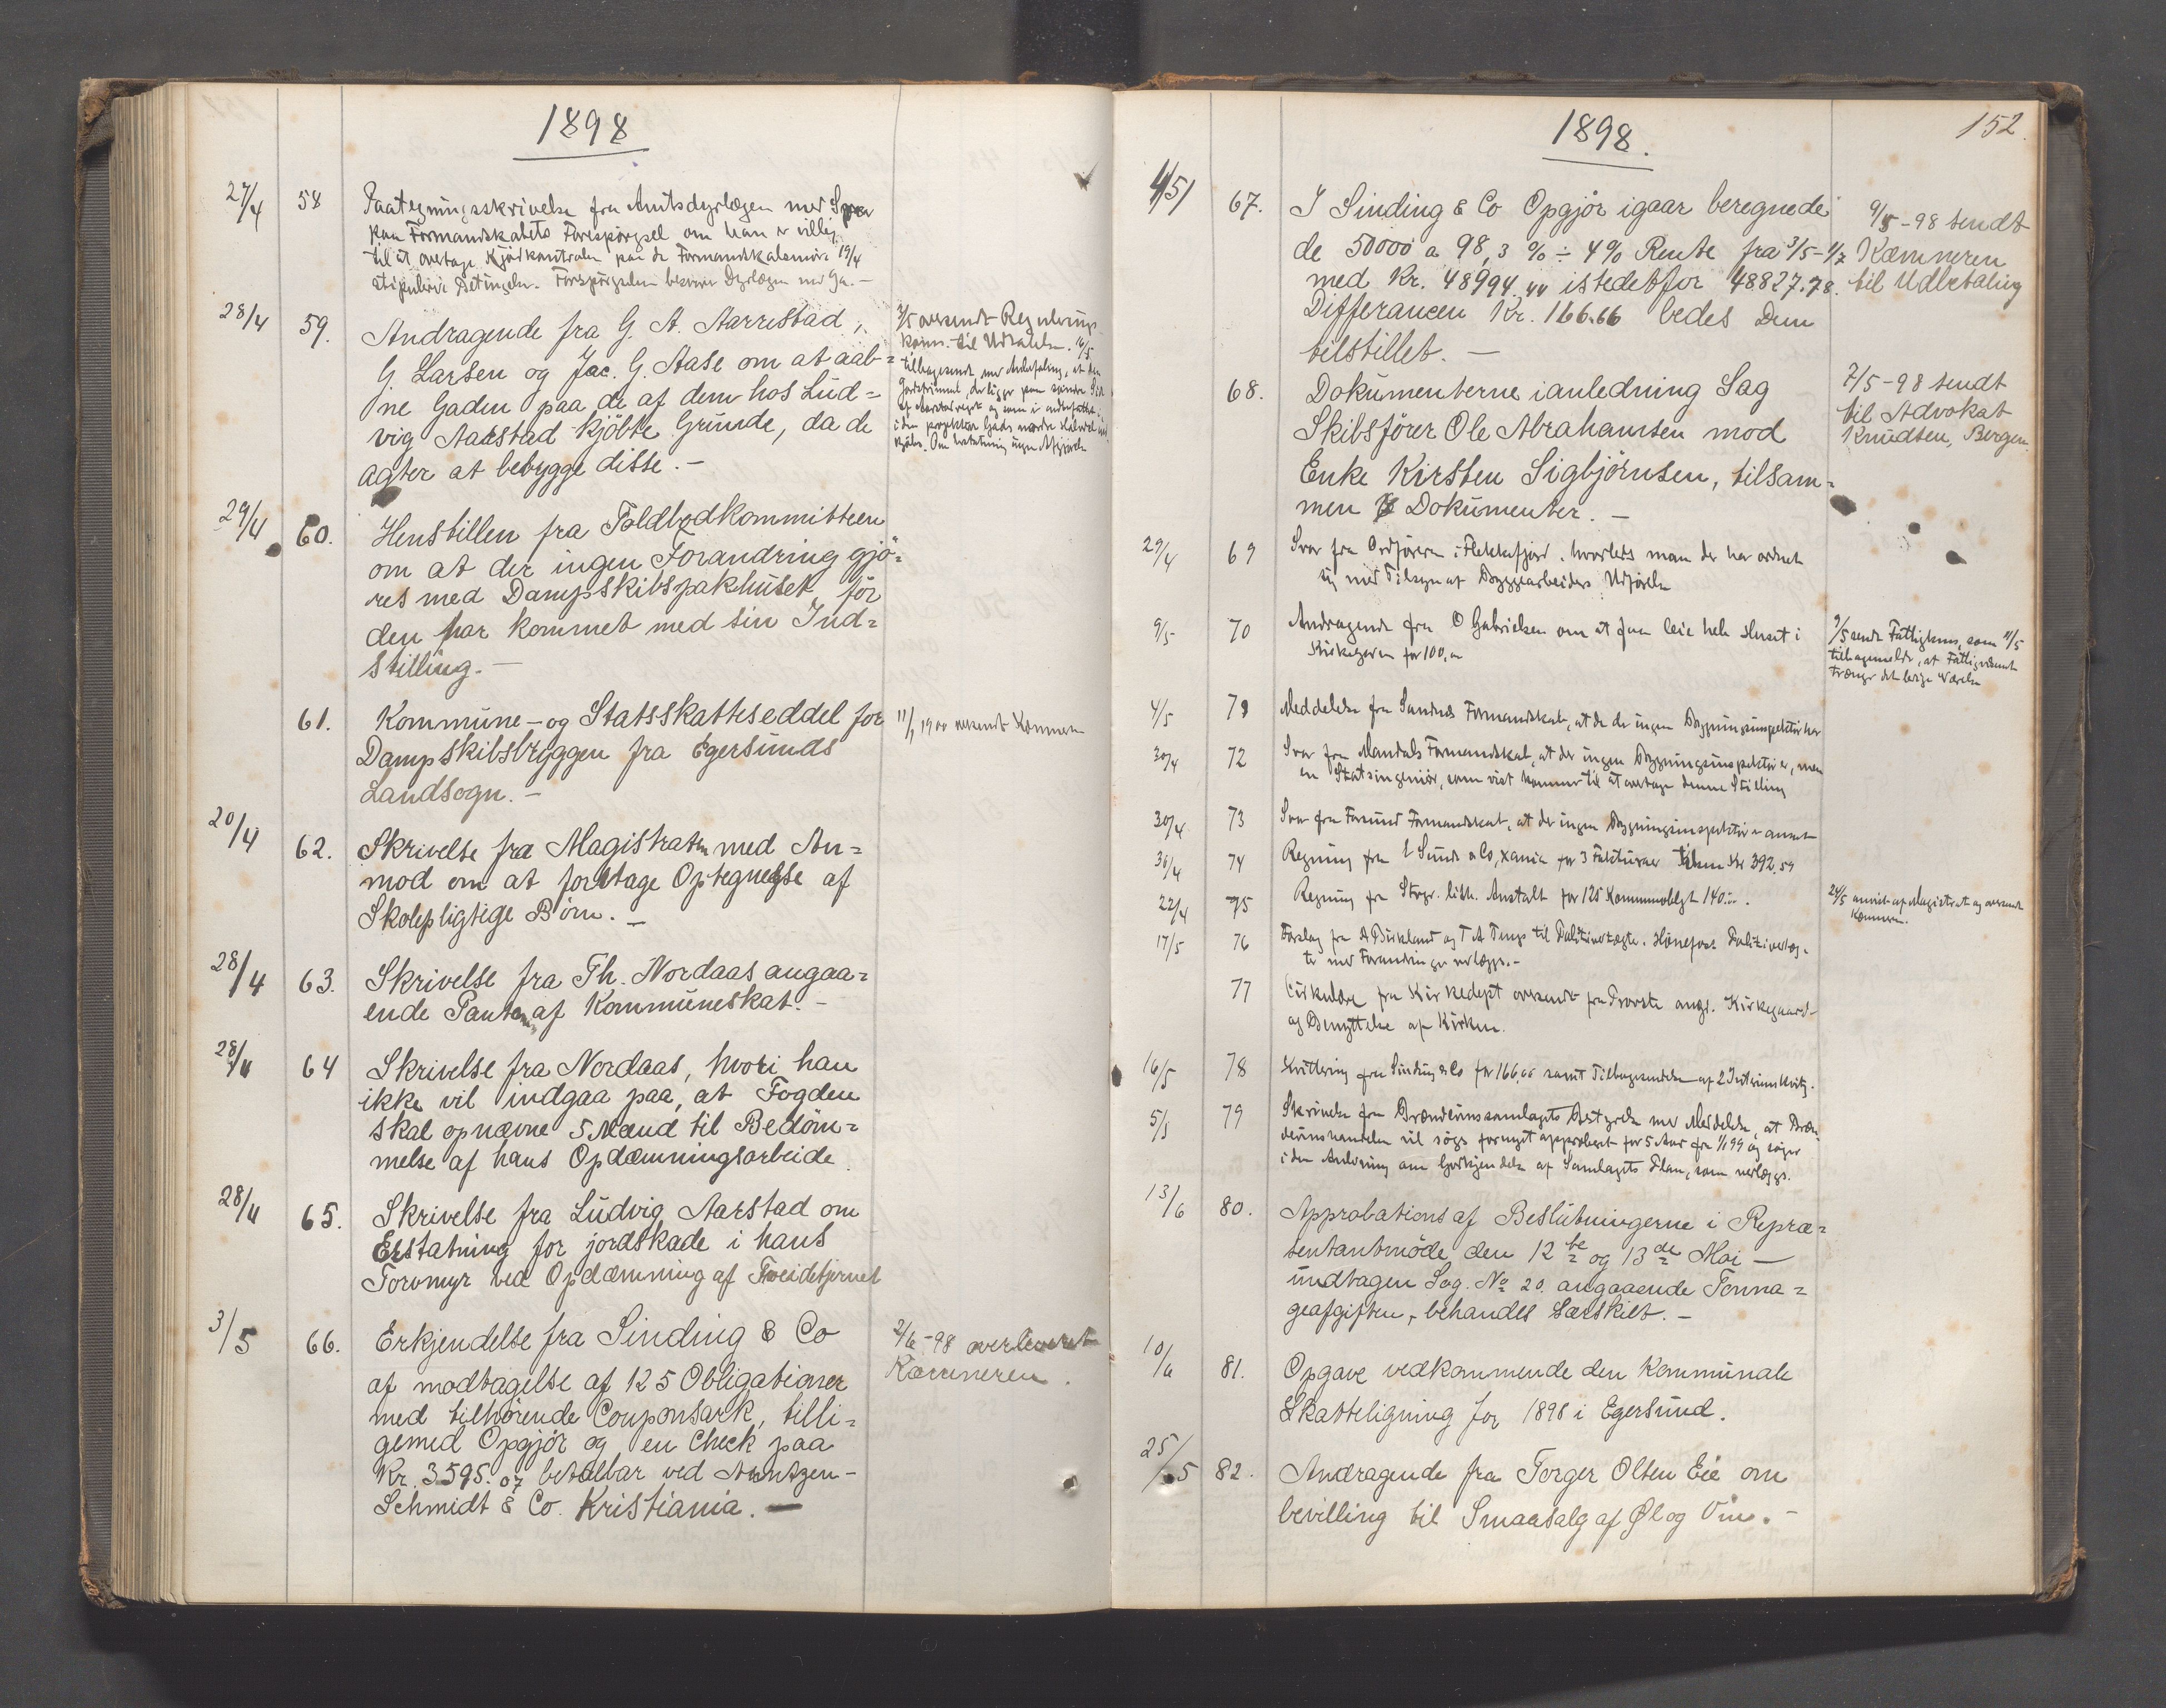 1898
27/4 58 Paategningsskrivelse fra Amtsdyrlægen med Svar
paa Formandskabets Forespörgsel om han er villig
til at overtage Kjödkontrolen paa de Formandskabsmöte 19/4
stipulerte Betingelser. Forespörgselen besvarer Dyrlægen med Ja. —
28/4 59. Andragende fra G. A. Aarrestad,
G. Larsen og Jac. G. Aase om at aab=
ne Gaden paa de af dem hos Lud=
vig Aarstad kjöbte Grunde, da de
agter at bebygge disse. —
2/5 oversendt Regulerings
komm. til Udtalelse. 16/5
tilbagesendt med Anbefaling, at den
29/4 60. Henstillen fra Toldbodkommitteen
om at der ingen Forandring gjö=
res med Dampskibspakhuset, för
den har kommet med sin Ind=
stilling. —
61. Kommune- og Statsskatteseddel for
Dampskibsbryggen fra Egersunds
Landsogn. —
11/1 1900 oversendt Kæmneren
20/4 62. Skrivelse fra Magistraten med An=
mod om at foretage Optegnelse af
Skolepligtige Börn. —
28/4 63. Skrivelse fra Th. Nordaas angaa=
ende Panten af Kommuneskat. —
28/4 64 Skrivelse fra Nordaas, hvori han
ikke vil indgaa paa, at Fogden
skal opnævne 5 Mænd til Bedöm=
melse af hans Opdæmningsarbeide.
28/4 65. Skrivelse fra Ludvig Aarstad om
Erstatning for jordskade i hans
Torvmyr ved Opdæmning af
3/5 66. Erkjendelse fra Sinding & Co
af modtagelse af 125 Obligationer
med tilhörende Couponsark, tilli=
gemed Opgjör og en Check paa
Kr. 3595.07 betalbar ved Arntzen-
Schmidt & Co. Kristiania. —
2/6-98 overleveret
Kæmneren.
1898.
152.
4/5 67. I Sinding & Co Opgjör igaar beregnede
de 50000 a 98,3 % ÷ 4% Rente fra 3/5-1/7
med Kr. 48994,44 istedetfor 48827.78.
Differancen Kr. 166.66 bedes Dem
tilstillet. —
9/5-98 sendt
Kæmneren
til Udbetaling
68. Dokumenterne ianledning Sag
Skibsförer Ole Abrahamsen mod
Enke Kirsten Sigbjörnsen, tilsam=
men Dokumenter. —
7/5-98 sendt
til Advokat
Knudsen, Bergen.
29/4 69 Svar fra Ordföreren i Flekkefjord, hvorledes man der har ordnet
sig med Tilsyn af Byggearbeiders Udförelse
9/5 70 Andragende fra O Gabrielsen om at faa leie hele Huset i
Kirkegaden for 100,00
9/5 sendt Fattigkomm, som 11/5
tilbagemelder, at Fattigvæsenet
trænger det ledige Værelse
4/5 71 Meddelelse fra Sandnes Formandskab, at de der ingen Bygningsinspektör har
30/4 72 Svar fra Mandals Formandskab, at der ingen Bygningsinspektör er, men
en Stadsingeniör, som vist kommer til at overtage denne Stilling
30/4 73 Svar fra Farsund Formandskab, at der ingen Bygningsinspektör er ansat
30/4 74 Regning fra L Sunde & Co, Xania for 3 Fakturaer Kr 392.59
22/4 75 Regning fra lith. Anstalt for 125 Kommuneoblgt 140.—.
24/5 anvist af Magistrat og oversendt
Kæmneren.
17/5 76 Forslag fra A Birkeland og T A Tengs til Politivedtægter. Hönefoss Politivedtæg-
ter med Forandringer vedlægges. —
77 Cirkulære fra Kirkedept oversendt fra Provsten angr. Kirkegaard
og Benyttelse af Kirken.
16/5 78 Kvittering fra Sinding & Co for 166,66 samt Tilbagesendelse af 2 Interimskvitg.
5/5 79 Skrivelse fra Brændevinssamlagets Bestyrelse med Meddelelse, at Bræn-
devinshandelen vil söges fornyet approberet for 5 Aar fra 1/1 99 og söger
i den Anledning om Godkjendelse af Samlagets Plan, som vedlægges.
13/6 80. Approbations af Beslutningerne i Repræ=
sentantmöde den 12te og 13de Mai —
undtagen Sag No 20. angaaende Tonna=
geafgiften, behandles særskilt. —
10/6 81. Opgave vedkommende den Kommunale
Skatteligning for 1898 i Egersund.
25/5 82. Andragende fra Torger Olsen Eie om
bevilling til Smaasalg af Øl og Vin. —